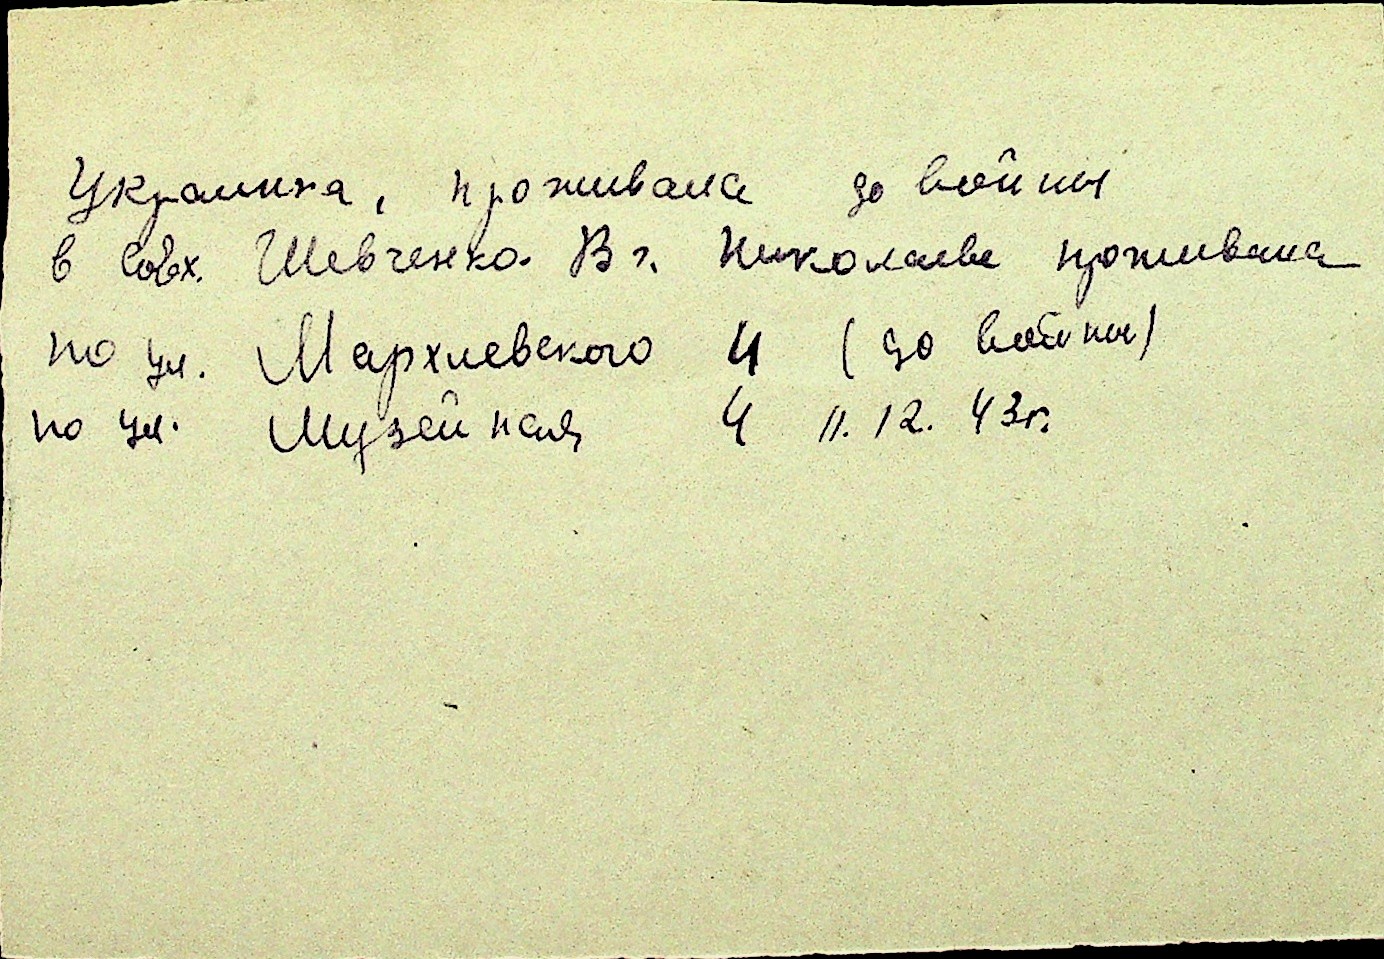 Украинка, проживала до войны
в совх. Шевченко. В г. Николаеве проживала
по ул. Мархлевского 4 (до войны)
по ул. Музейная 4 11.12.43г.